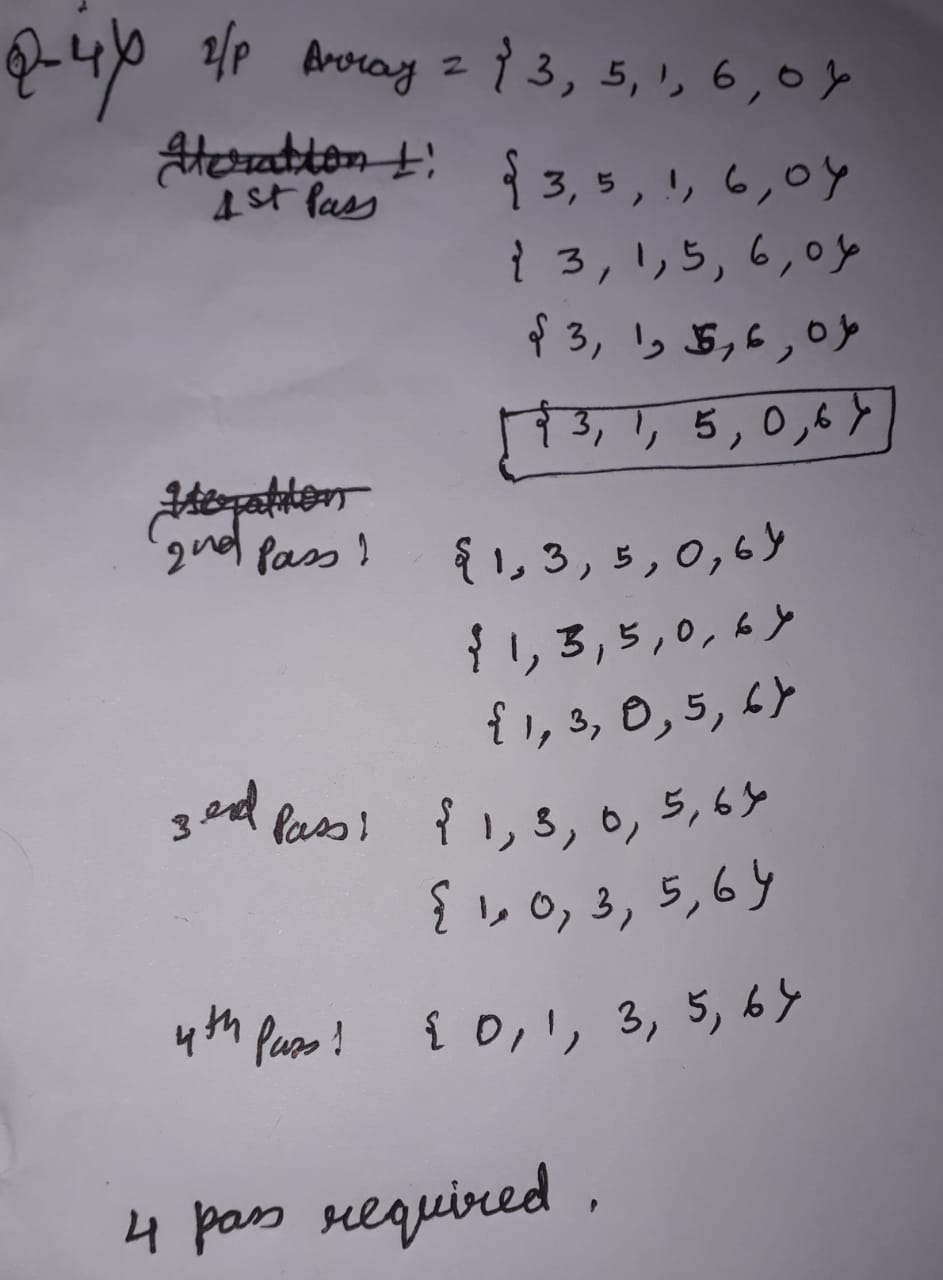 Q-4) I/P Array = { 3, 5, 1, 6, 0 }
1st Pass { 3, 5, 1, 6, 0 }
{ 3, 1, 5, 6, 0 }
{ 3, 1, 5, 6, 0 }
{ 3, 1, 5, 0, 6 }
Iteration
2nd Pass : { 1, 3, 5, 0, 6 }
{ 1, 3, 5, 0, 6 }
{ 1, 3, 0, 5, 6 }
3rd Pass : { 1, 3, 0, 5, 6 }
{ 1, 0, 3, 5, 6 }
4th Pass : { 0, 1, 3, 5, 6 }
4 pass required .